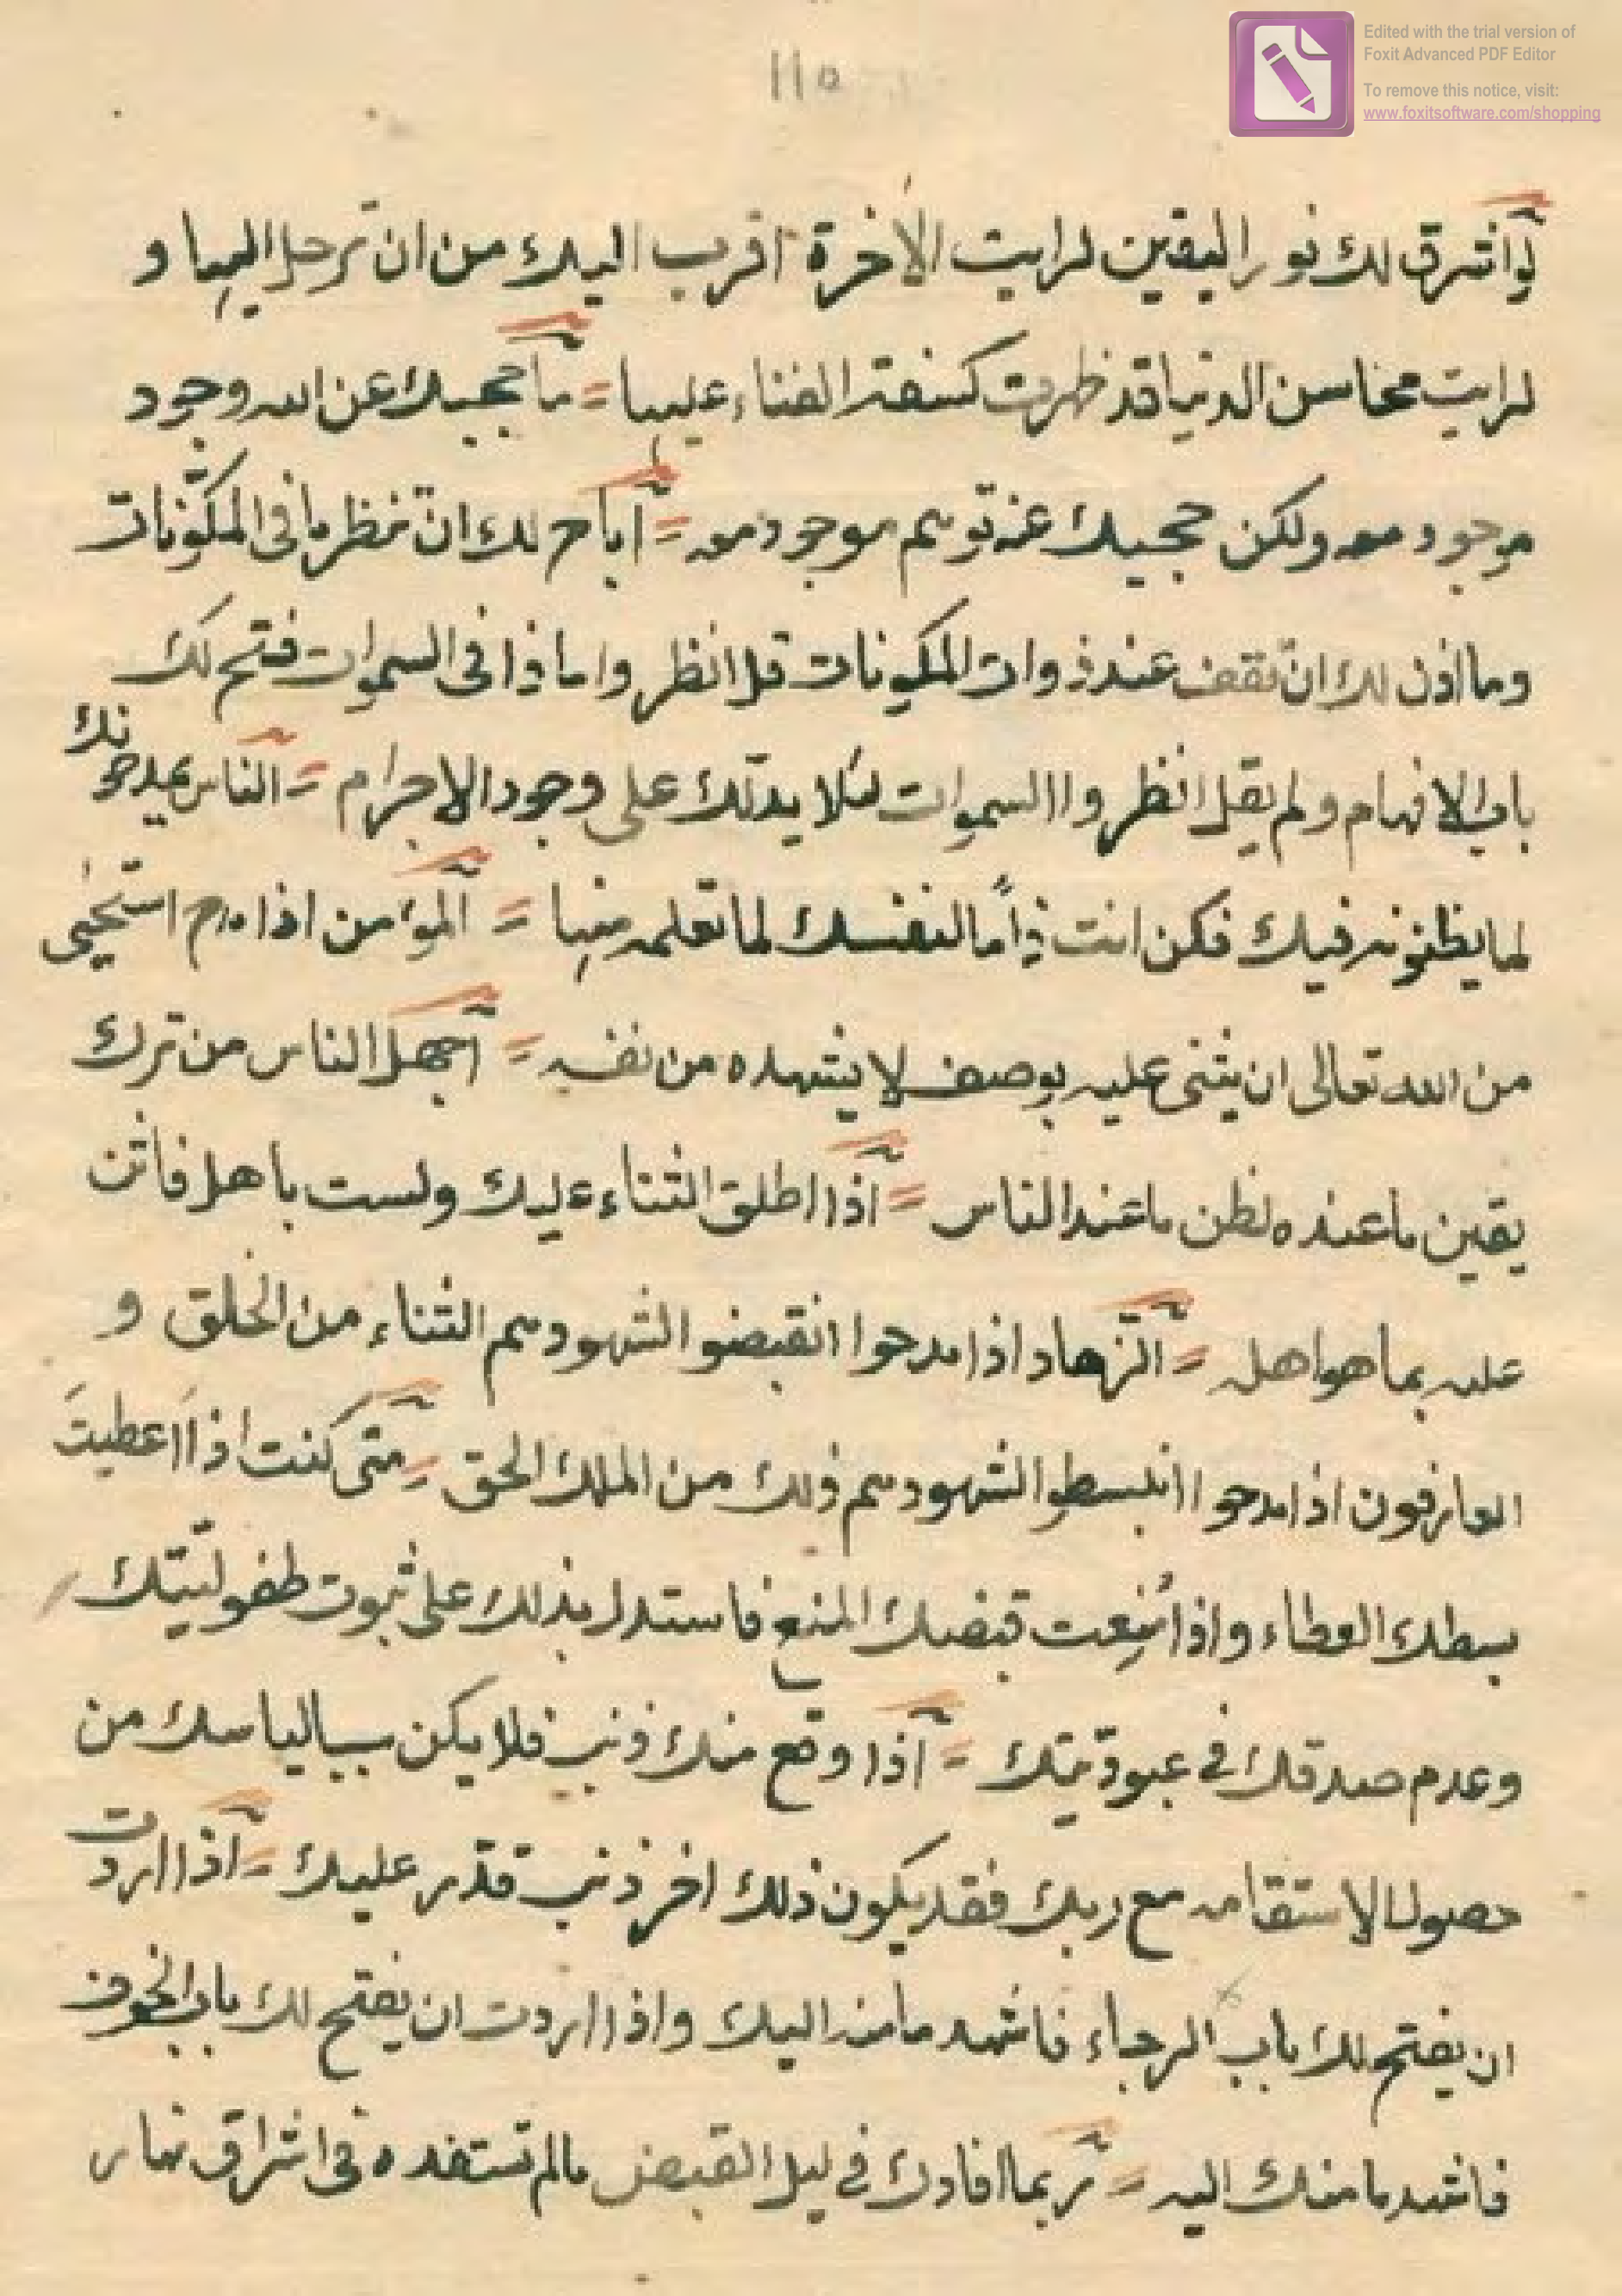 Edited with the trial version of
Foxit Advanced PDF Editor
To remove this notice, visit:
www.foxitsoftware.com/shopping
١١٥
لو اشرق لك نور اليقين لرايت الاخرة اقرب اليك من ان ترحل اليها و
لرايت محاسن الدنيا قد ظهرت كسفة الفناء عليها = ما حجبك عن الله وجود
موجود معه ولكن حجبك عنه توهم موجود معه = اباح لك ان تنظر ما في المكوّنات
وما اذن لك ان تقف عند ذوات المكونات قل انظروا ماذا في السموات فتح لك
باب الافهام ولم يقل انظروا السموات لئلا يدلّك على وجود الاجرام = الناس يمدحونك
لما يظنونه فيك فكن انت ذامّا لنفسك لما تعلمه منها = المؤمن اذا مدح استحيى
من الله تعالى ان يثنى عليه بوصف لا يشهده من نفسه = اجهل الناس من ترك
يقين ما عنده لظن ما عند الناس = اذا اطلق الثناء عليك ولست باهل فاثن
عليه بما هو اهله = الزّهاد اذا مدحوا انقبضوا لشهودهم الثناء من الخلق و
العارفون اذا مدحوا انبسطوا لشهودهم ذلك من الملك الحق = متى كنت اذا اعطيتَ
بسطك العطاء واذا مُنِعت قبضك المنع فاستدل بذلك على ثبوت طفوليّتك
وعدم صدقك في عبوديّتك = اذا وقع منك ذنب فلا يكن سببا لياسك من
حصول الاستقامه مع ربك فقد يكون ذلك اخر ذنب قدّر عليك = اذا اردت
ان يفتح لك باب الرجاء فاشهد ما منه اليك واذا اردت ان يفتح لك باب الخوف
فاشهد ما منك اليه = ربما افادك في ليل القبض ما لم تستفده في اشراق نهار